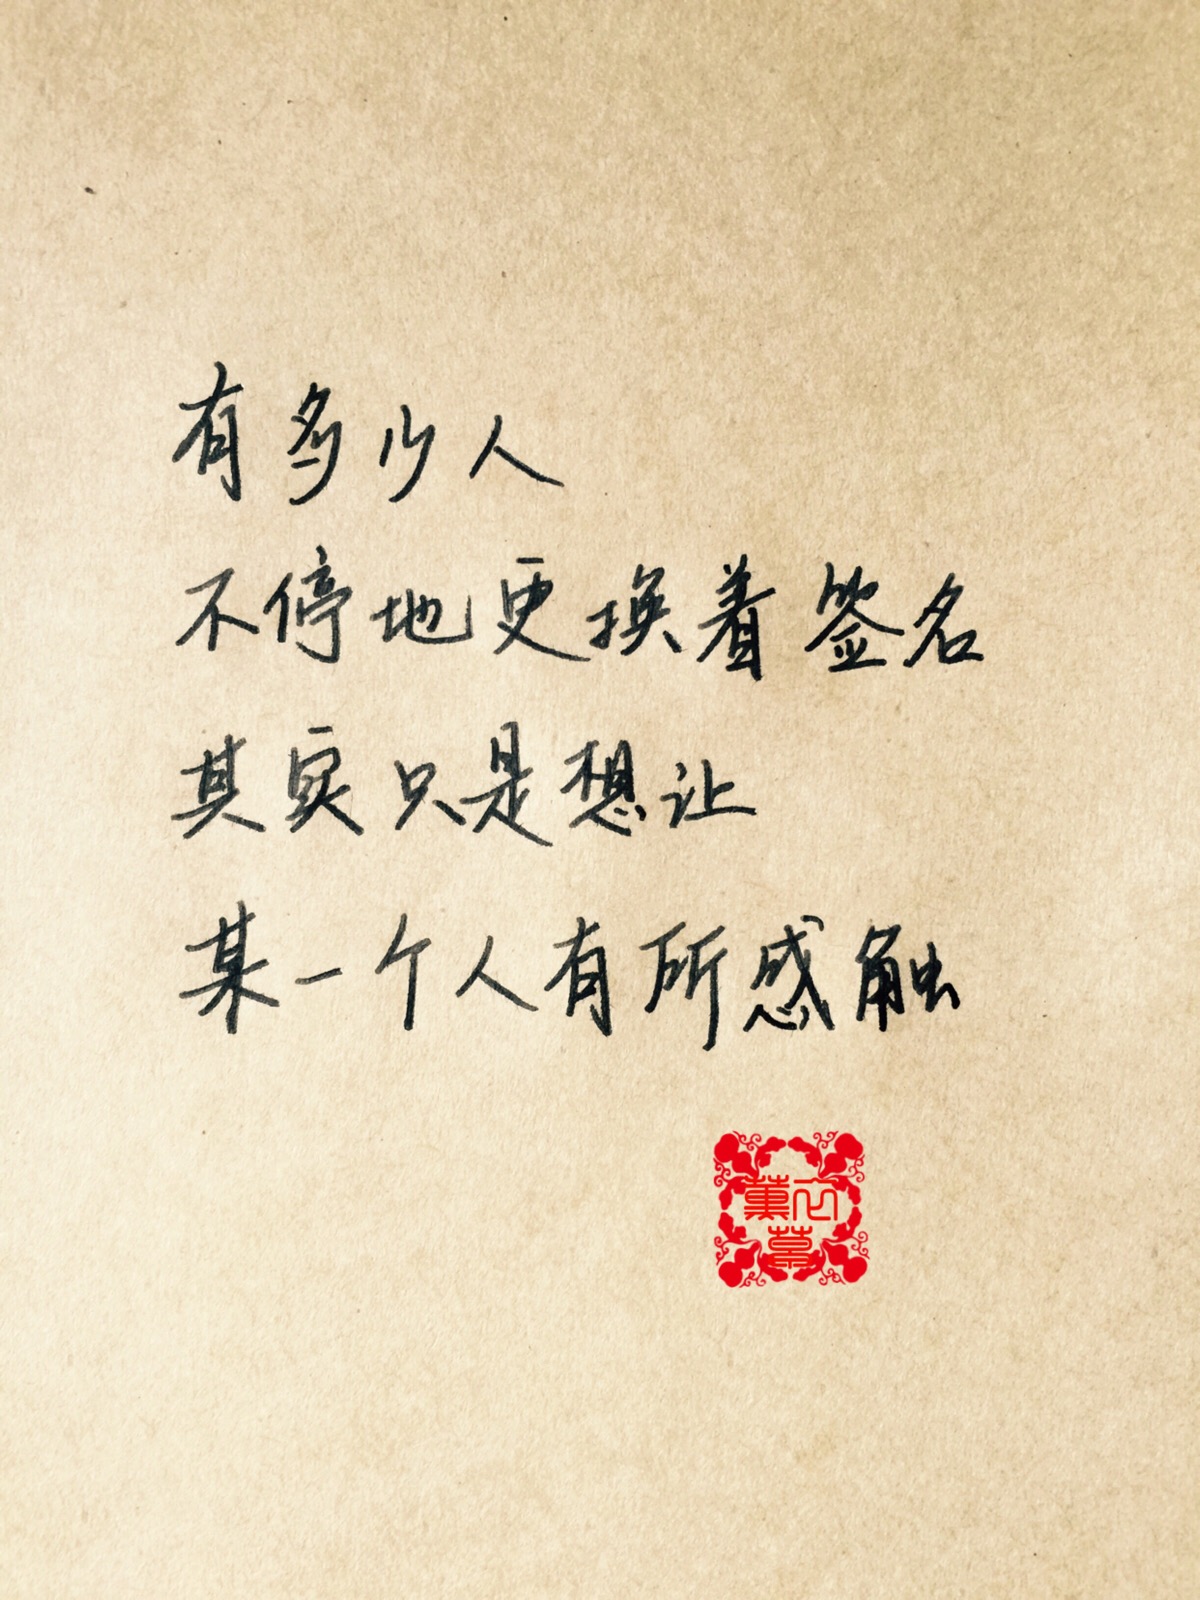 有多少人
不停地更换着签名
其实只是想让
某一个人有所感触